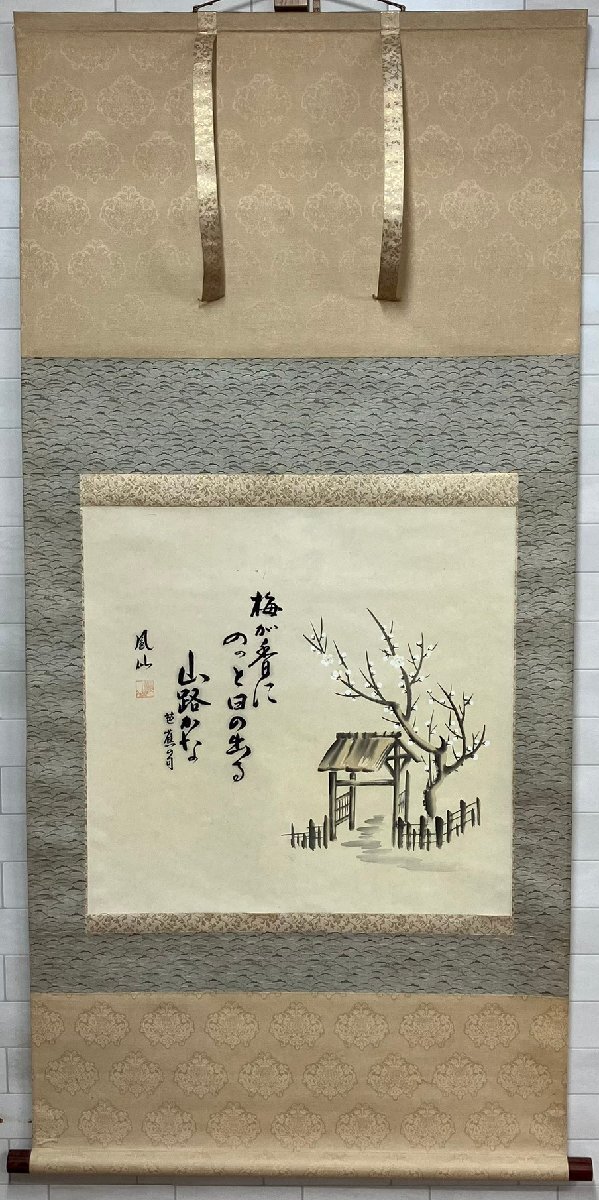 梅が香に
のっと日の出る
山路かな
芭蕉の句
風仙